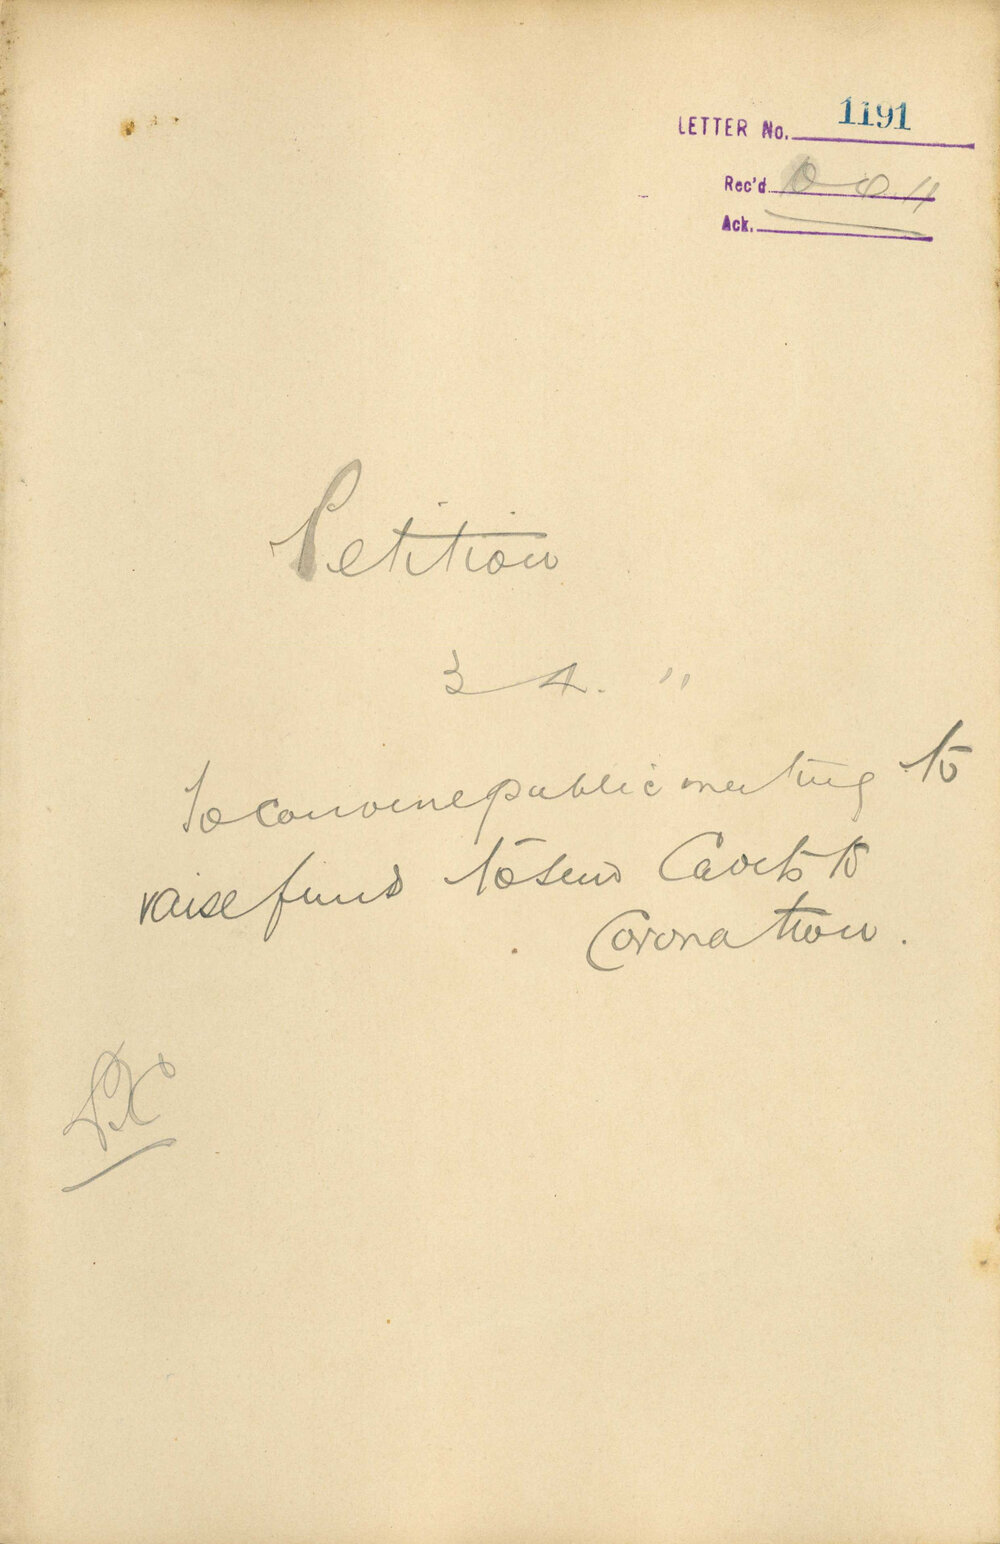 LETTER No. 1191
Rec'd
Ack.
Petition
3 4. "
To convene public meeting to
raise fund to send Cadets to
Coronation.